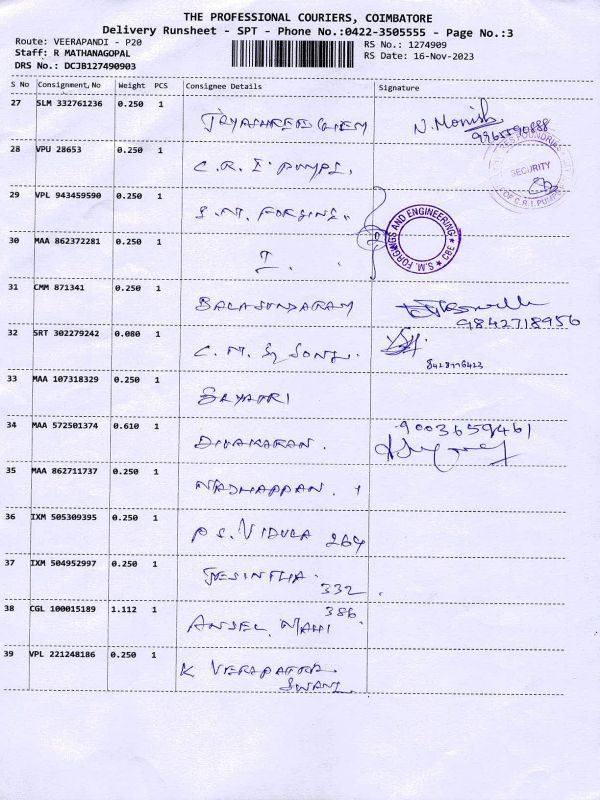 THE PROFESSIONAL COURIERS, COIMBATORE
Delivery Runsheet - SPT - Phone No.:0422-3505555 - Page No.:3
Route: VEERAPANDI - P20
Staff: R MATHANAGOPAL
DRS No.: DCJB127490903
RS No.: 1274909
RS Date: 16-Nov-2023
S No Consignment,No Weight PCS Consignee Details Signature
27 SLM 332761236 0.250 1 N. Monish
9965590888
28 VPU 28653 0.250 1 C.R.I. PUMPS.
SECURITY
OF C.R.I. PUMPS
29 VPL 943459590 0.250 1 S.M. FORGING.
S.M. FORGINGS AND ENGINEERING * CBE *
30 MAA 862372281 0.250 1 I.
31 CMM 871341 0.250 1 BALASUNDARAM
9842718956
32 SRT 302279242 0.080 1 C.M. SONS.
8428776423
33 MAA 107318329 0.250 1 GAYATRI
34 MAA 572501374 0.610 1 DIVAKARAN.
9003659461
35 MAA 862711737 0.250 1 MADHAPPAN.
36 IXM 505309395 0.250 1 P.S. VIDULA 264
37 IXM 504952997 0.250 1 JESINTHA.
332.
38 CGL 100015189 1.112 1 386.
ANSEL MAHI
39 VPL 221248186 0.250 1 K VEERAPATRA
SWAMI.